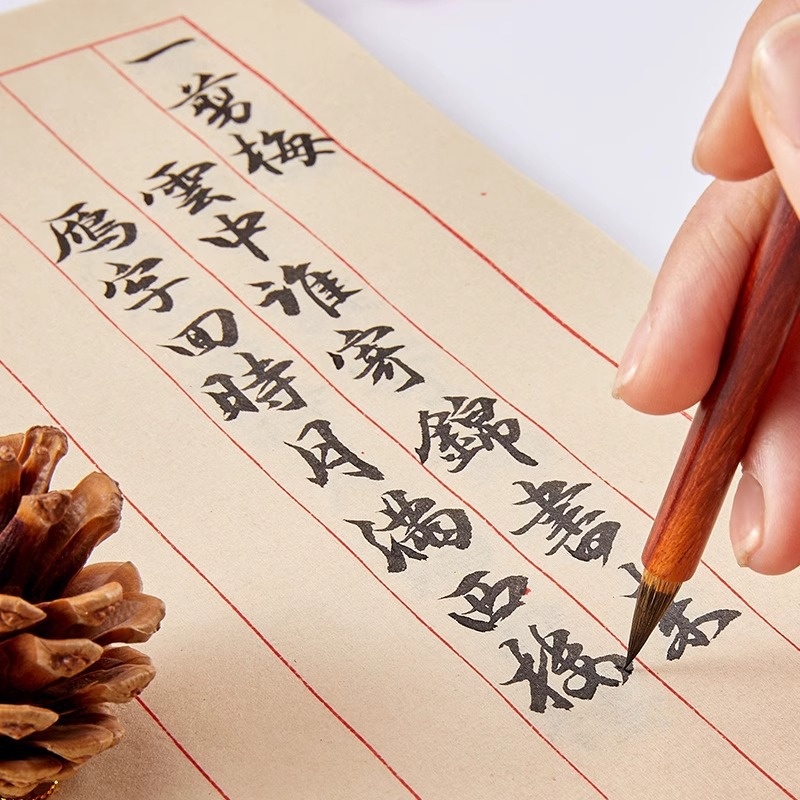 一剪梅
雲中誰寄錦書來
鴈字回時月滿西樓